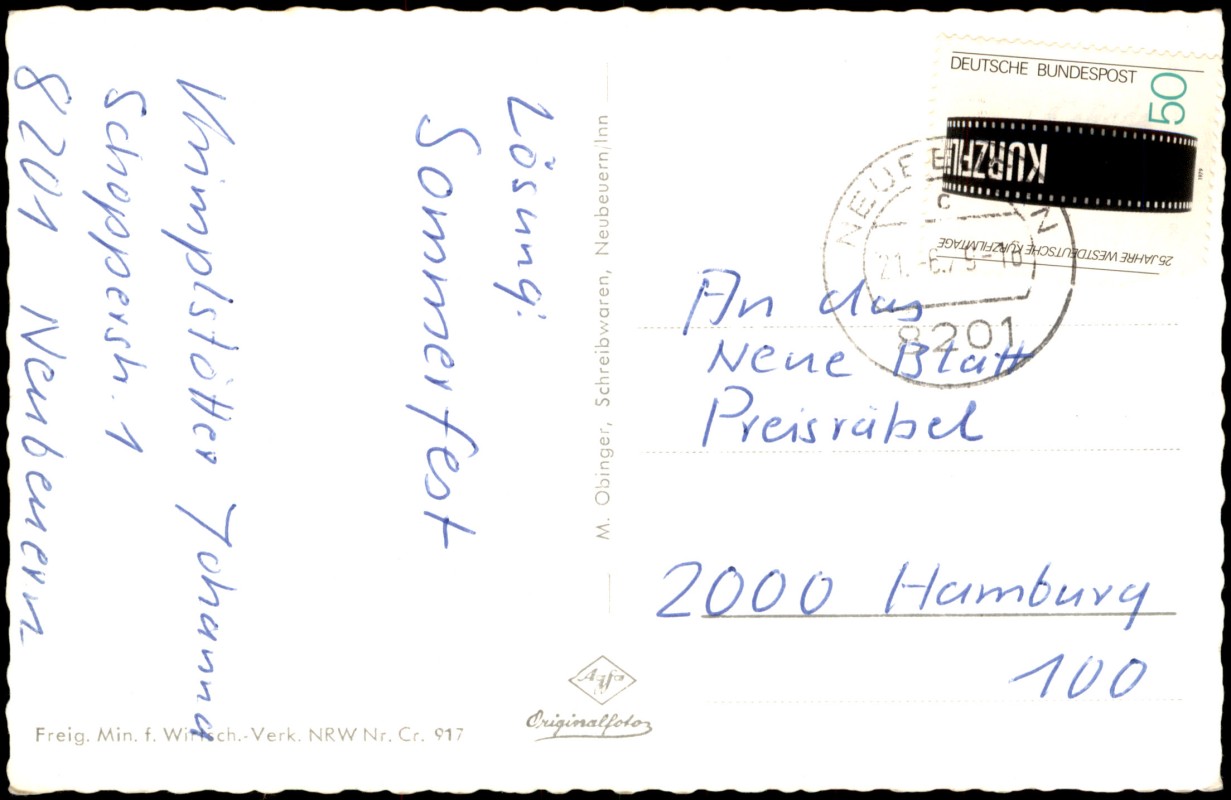 Lösung:
Sommerfest
Johanna
Schopperstr. 1
8201 Neubeuern
M. Obinger, Schreibwaren, Neubeuern/Inn
DEUTSCHE BUNDESPOST
50
KURZFIL
25 JAHRE WESTDEUTSCHE KURZFILMTAGE
21.-6.79-16
8201
An das
Neue Blatt
Preisräbel
2000 Hamburg
100
Agfa
Originalfoto
Freig. Min. f. Wirtsch.-Verk. NRW Nr. Cr. 917